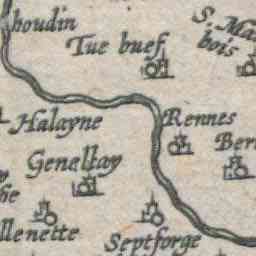 houdin
Tue buef
S. Ma
bois
Halayne
Rennes
Ber
Geneltay
he
llenette
Septforge